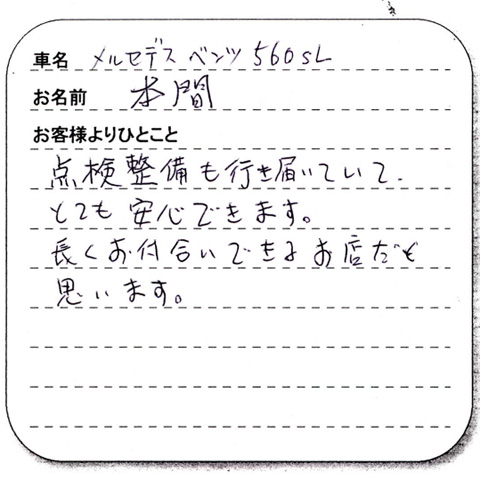 車名 メルセデス ベンツ 560SL
お名前 本間
お客様よりひとこと
点検整備も行き届いていて、
とても安心できます。
長くお付合いできるお店だと
思います。